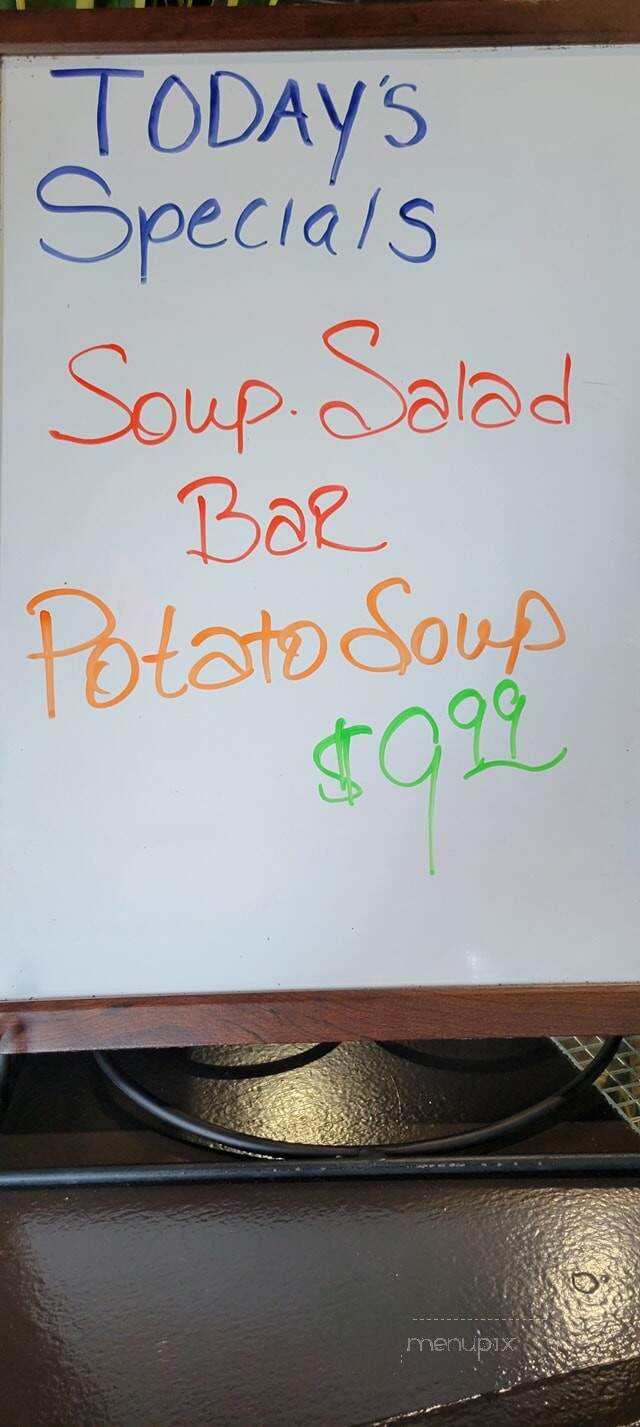 TODAY'S
Specials
Soup. Salad
Bar
Potato Soup
$9.99
menupix